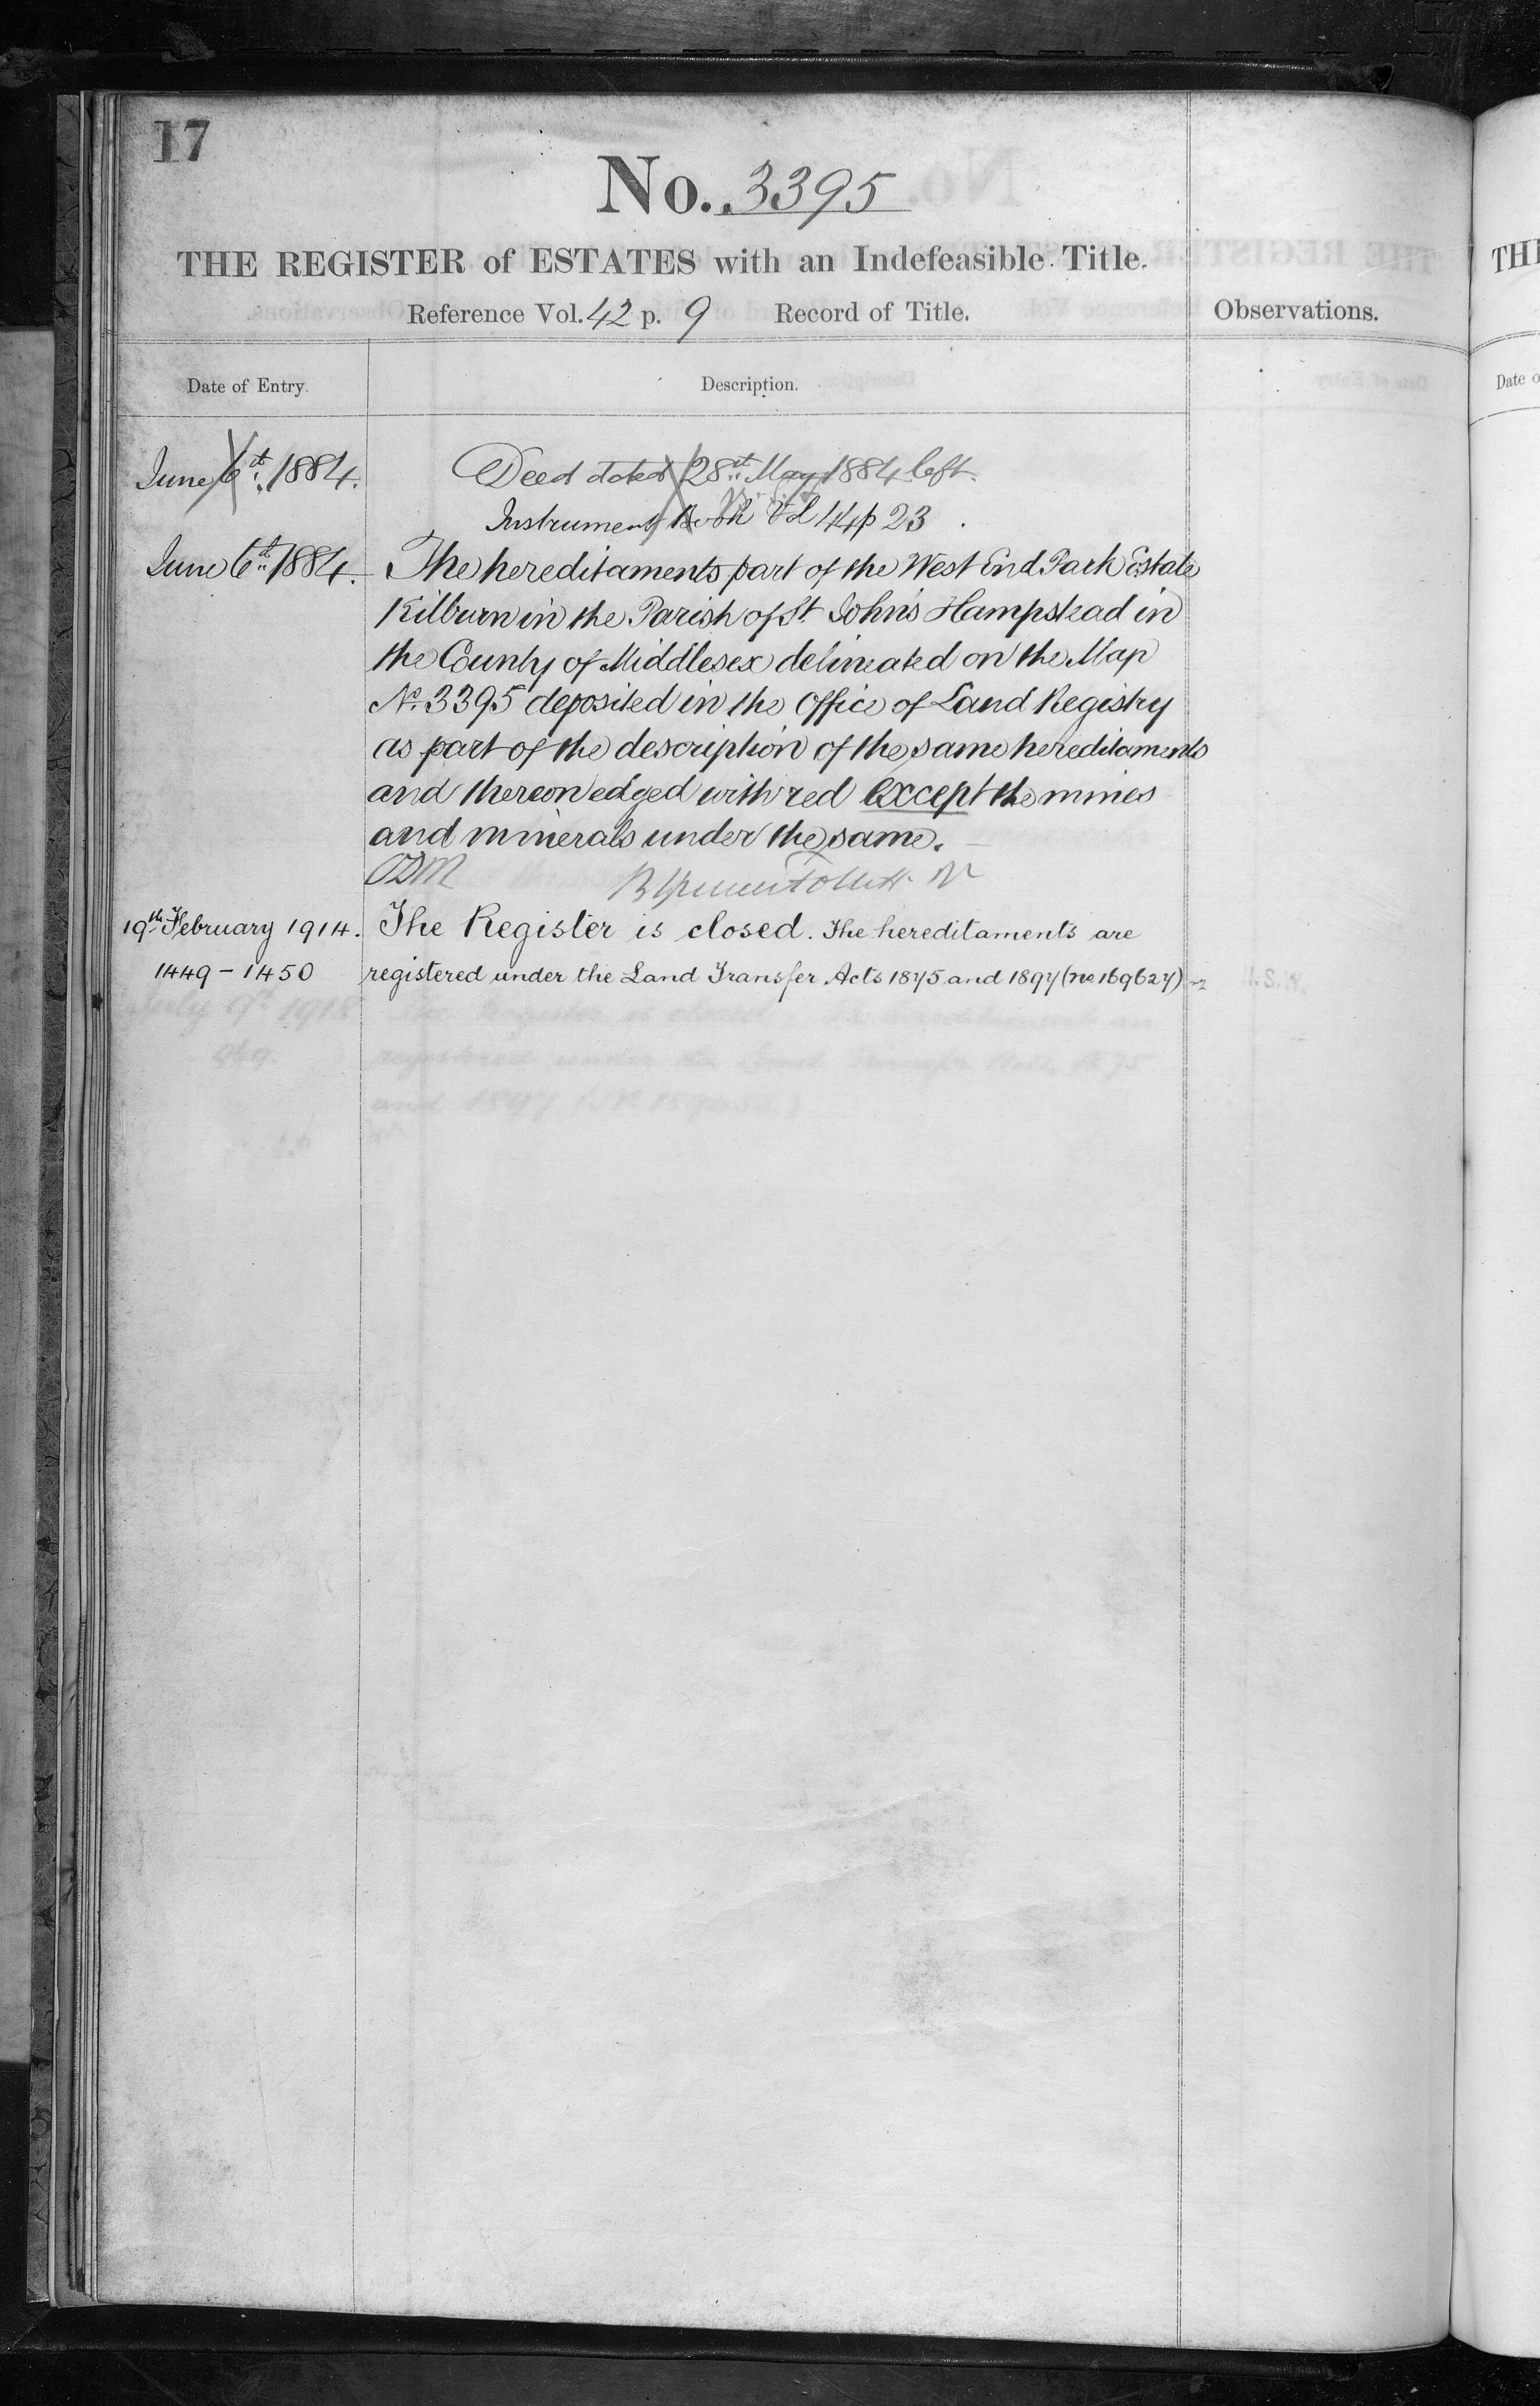 17
No. 3395
THE REGISTER of ESTATES with an Indefeasible Title.
Reference Vol. 42 p. 9 Record of Title.
Observations.
Date of Entry.
Description.
June 6th 1884. Deed dated 28th May 1884 left.
Instrument Book Vol 14 p 23
June 6th 1884. The hereditaments part of the West End Park Estate
Kilburn in the Parish of St. John's Hampstead in
the County of Middlesex delineated on the Map
No. 3395 deposited in the Office of Land Registry
as part of the description of the same hereditaments
and thereon edged with red except the mines
and minerals under the same.
19th February 1914. The Register is closed. The hereditaments are
1449 - 1450 registered under the Land Transfer Acts 1875 and 1897 (no 169627)
THE
Date o